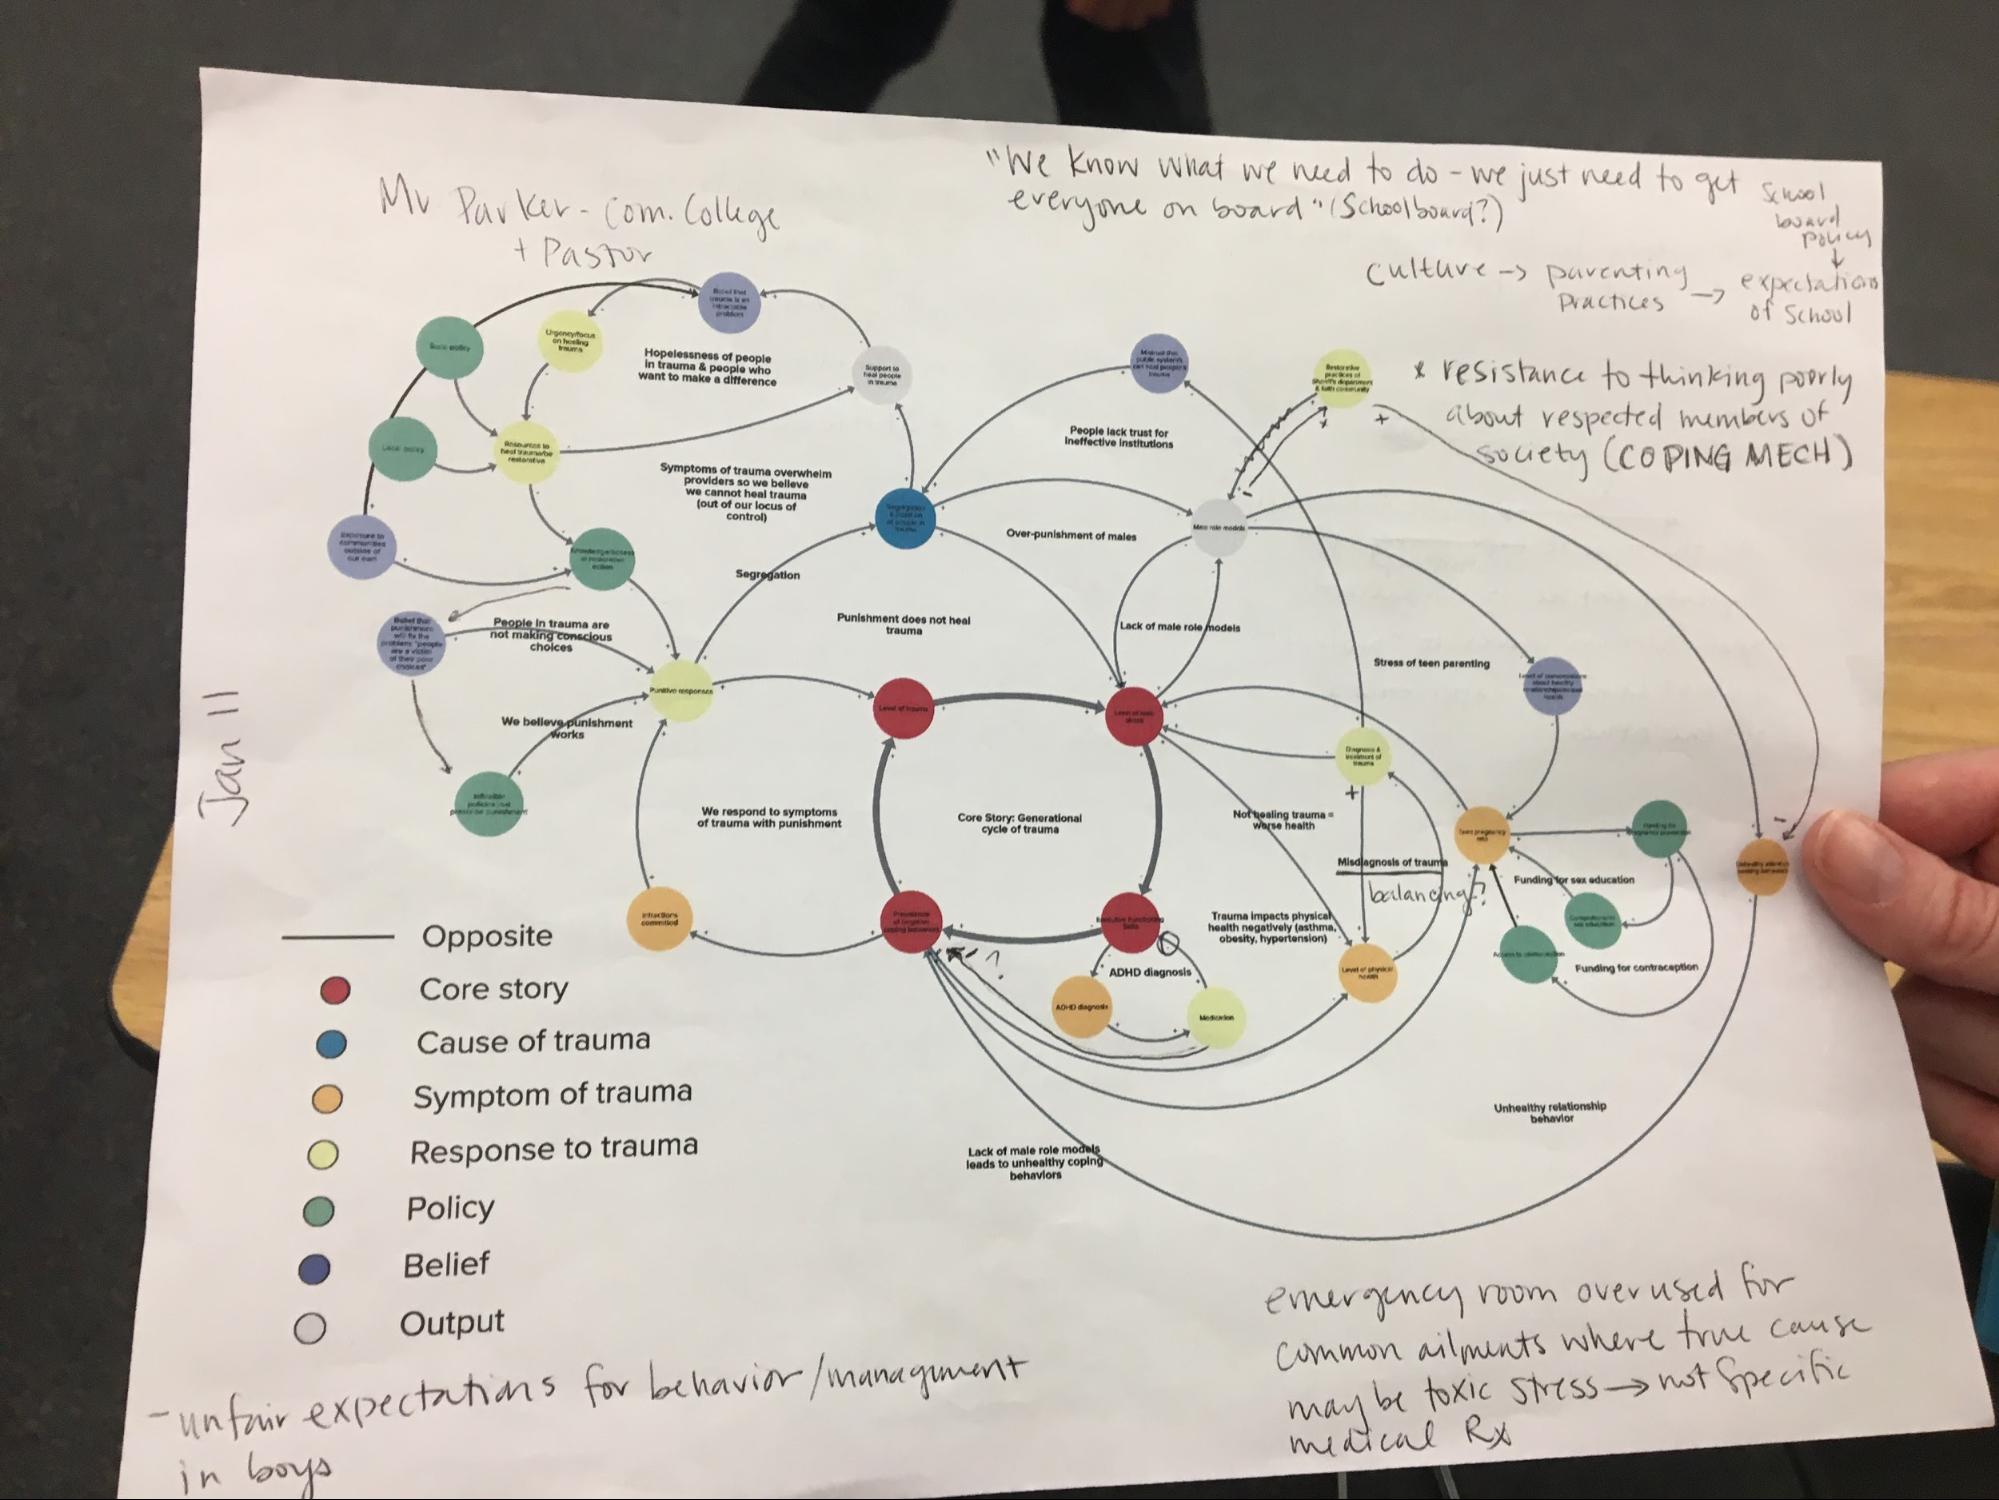 "We know what we need to do - we just need to get
everyone on board" (Schoolboard?)
School
board
policy
Mr Parker - Com. College
+ Pastor
culture → parenting
practices → expectations
of School
* resistance to thinking poorly
about respected members of
society (COPING MECH)
Jan 11
Belief that
trauma is an
intractable
problem
State policy
Urgency/focus
on healing
trauma
Hopelessness of people
in trauma & people who
want to make a difference
Support to
heal people
in trauma
Mistrust that
public systems
can heal people's
trauma
Restorative
practices of
Sheriff's department
& faith community
People lack trust for
ineffective institutions
Local policy
Resources to
heal trauma/be
restorative
Symptoms of trauma overwhelm
providers so we believe
we cannot heal trauma
(out of our locus of
control)
Male role models
Over-punishment of males
Exposure to
communities
outside of
our own
Segregation
Punishment does not heal
trauma
Lack of male role models
Belief that
punishment
will fix the
problem: "people
are a victim
of their poor
choices"
People in trauma are
not making conscious
choices
Stress of teen parenting
Punitive responses
Level of trauma
We believe punishment
works
Diagnosis &
treatment of
trauma
We respond to symptoms
of trauma with punishment
Core Story: Generational
cycle of trauma
Not healing trauma =
worse health
Teen pregnancy
Misdiagnosis of trauma
balancing?
Funding for sex education
Infractions
committed
Prevalence
of negative
coping behaviors
Executive functioning
Trauma impacts physical
health negatively (asthma,
obesity, hypertension)
Level of physical
health
Funding for contraception
ADHD diagnosis
ADHD diagnosis
Medication
Unhealthy relationship
behavior
Lack of male role models
leads to unhealthy coping
behaviors
Opposite
Core story
Cause of trauma
Symptom of trauma
Response to trauma
Policy
Belief
Output
- unfair expectations for behavior/management
in boys
emergency room overused for
common ailments where true cause
may be toxic stress → not specific
medical Rx